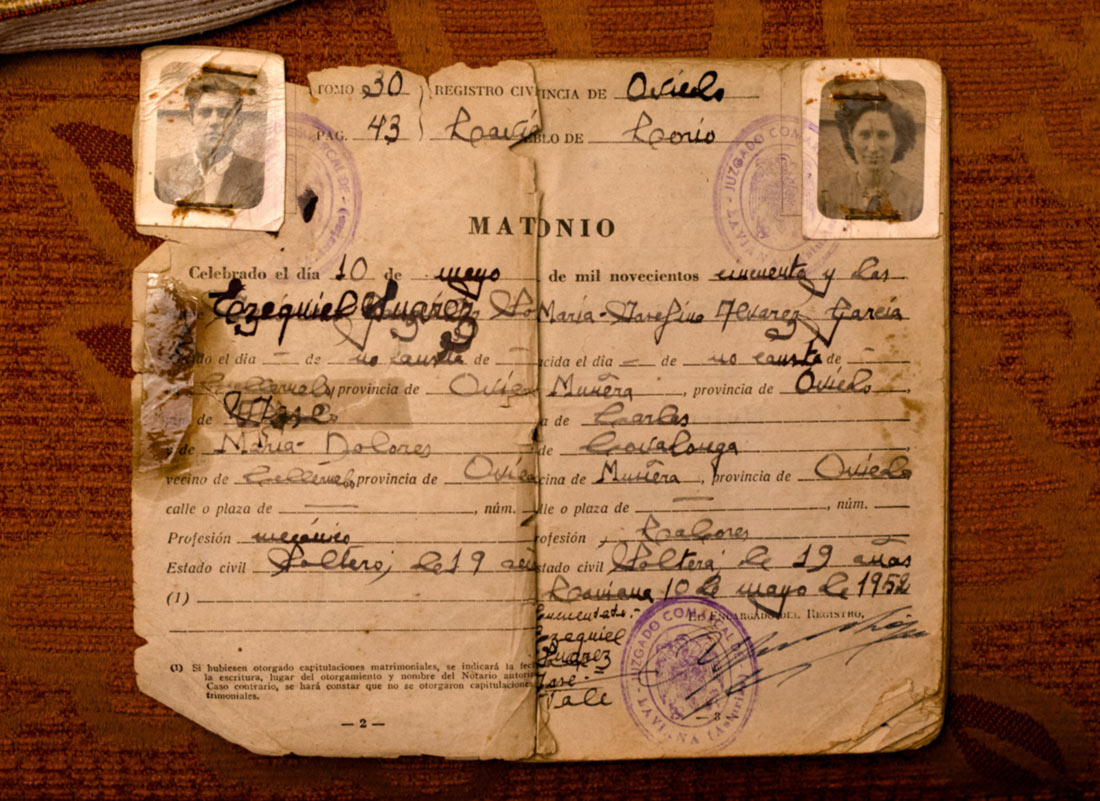 TOMO 30 REGISTRO CIV
PÁG. 43
INCIA DE Oviedo
BLO DE Lorio
JUZGADO COMARCAL
LAVIANA
MAT ONIO
Celebrado el día 10 de mayo de mil novecientos cincuenta y dos
Ezequiel Suárez María-Josefina Alvarez García
cido el día - de no consta de -
cida el día - de no consta de -
provincia de Oviedo
Muñera, provincia de Oviedo
de José
a de Carlos
y de María-Dolores
de Covadonga
vecino de provincia de Oviedo
cina de Muñera, provincia de Oviedo
calle o plaza de — , núm.
lle o plaza de — , núm. —
Profesión mecánico
rofesión, Labores
Estado civil Soltero, de 19 año
stado civil Soltera, de 19 años
(1)
Laviana 10 de mayo de 1952
EL ENCARGADO DEL REGISTRO,
Ezequiel
Suárez
José
Vale
JUZGADO COMARCAL
LAVIANA (Asturias)
(1) Si hubiesen otorgado capitulaciones matrimoniales, se indicará la fec
la escritura, lugar del otorgamiento y nombre del Notario autori
Caso contrario, se hará constar que no se otorgaron capitulacione
trimoniales.
— 2 —
— 3